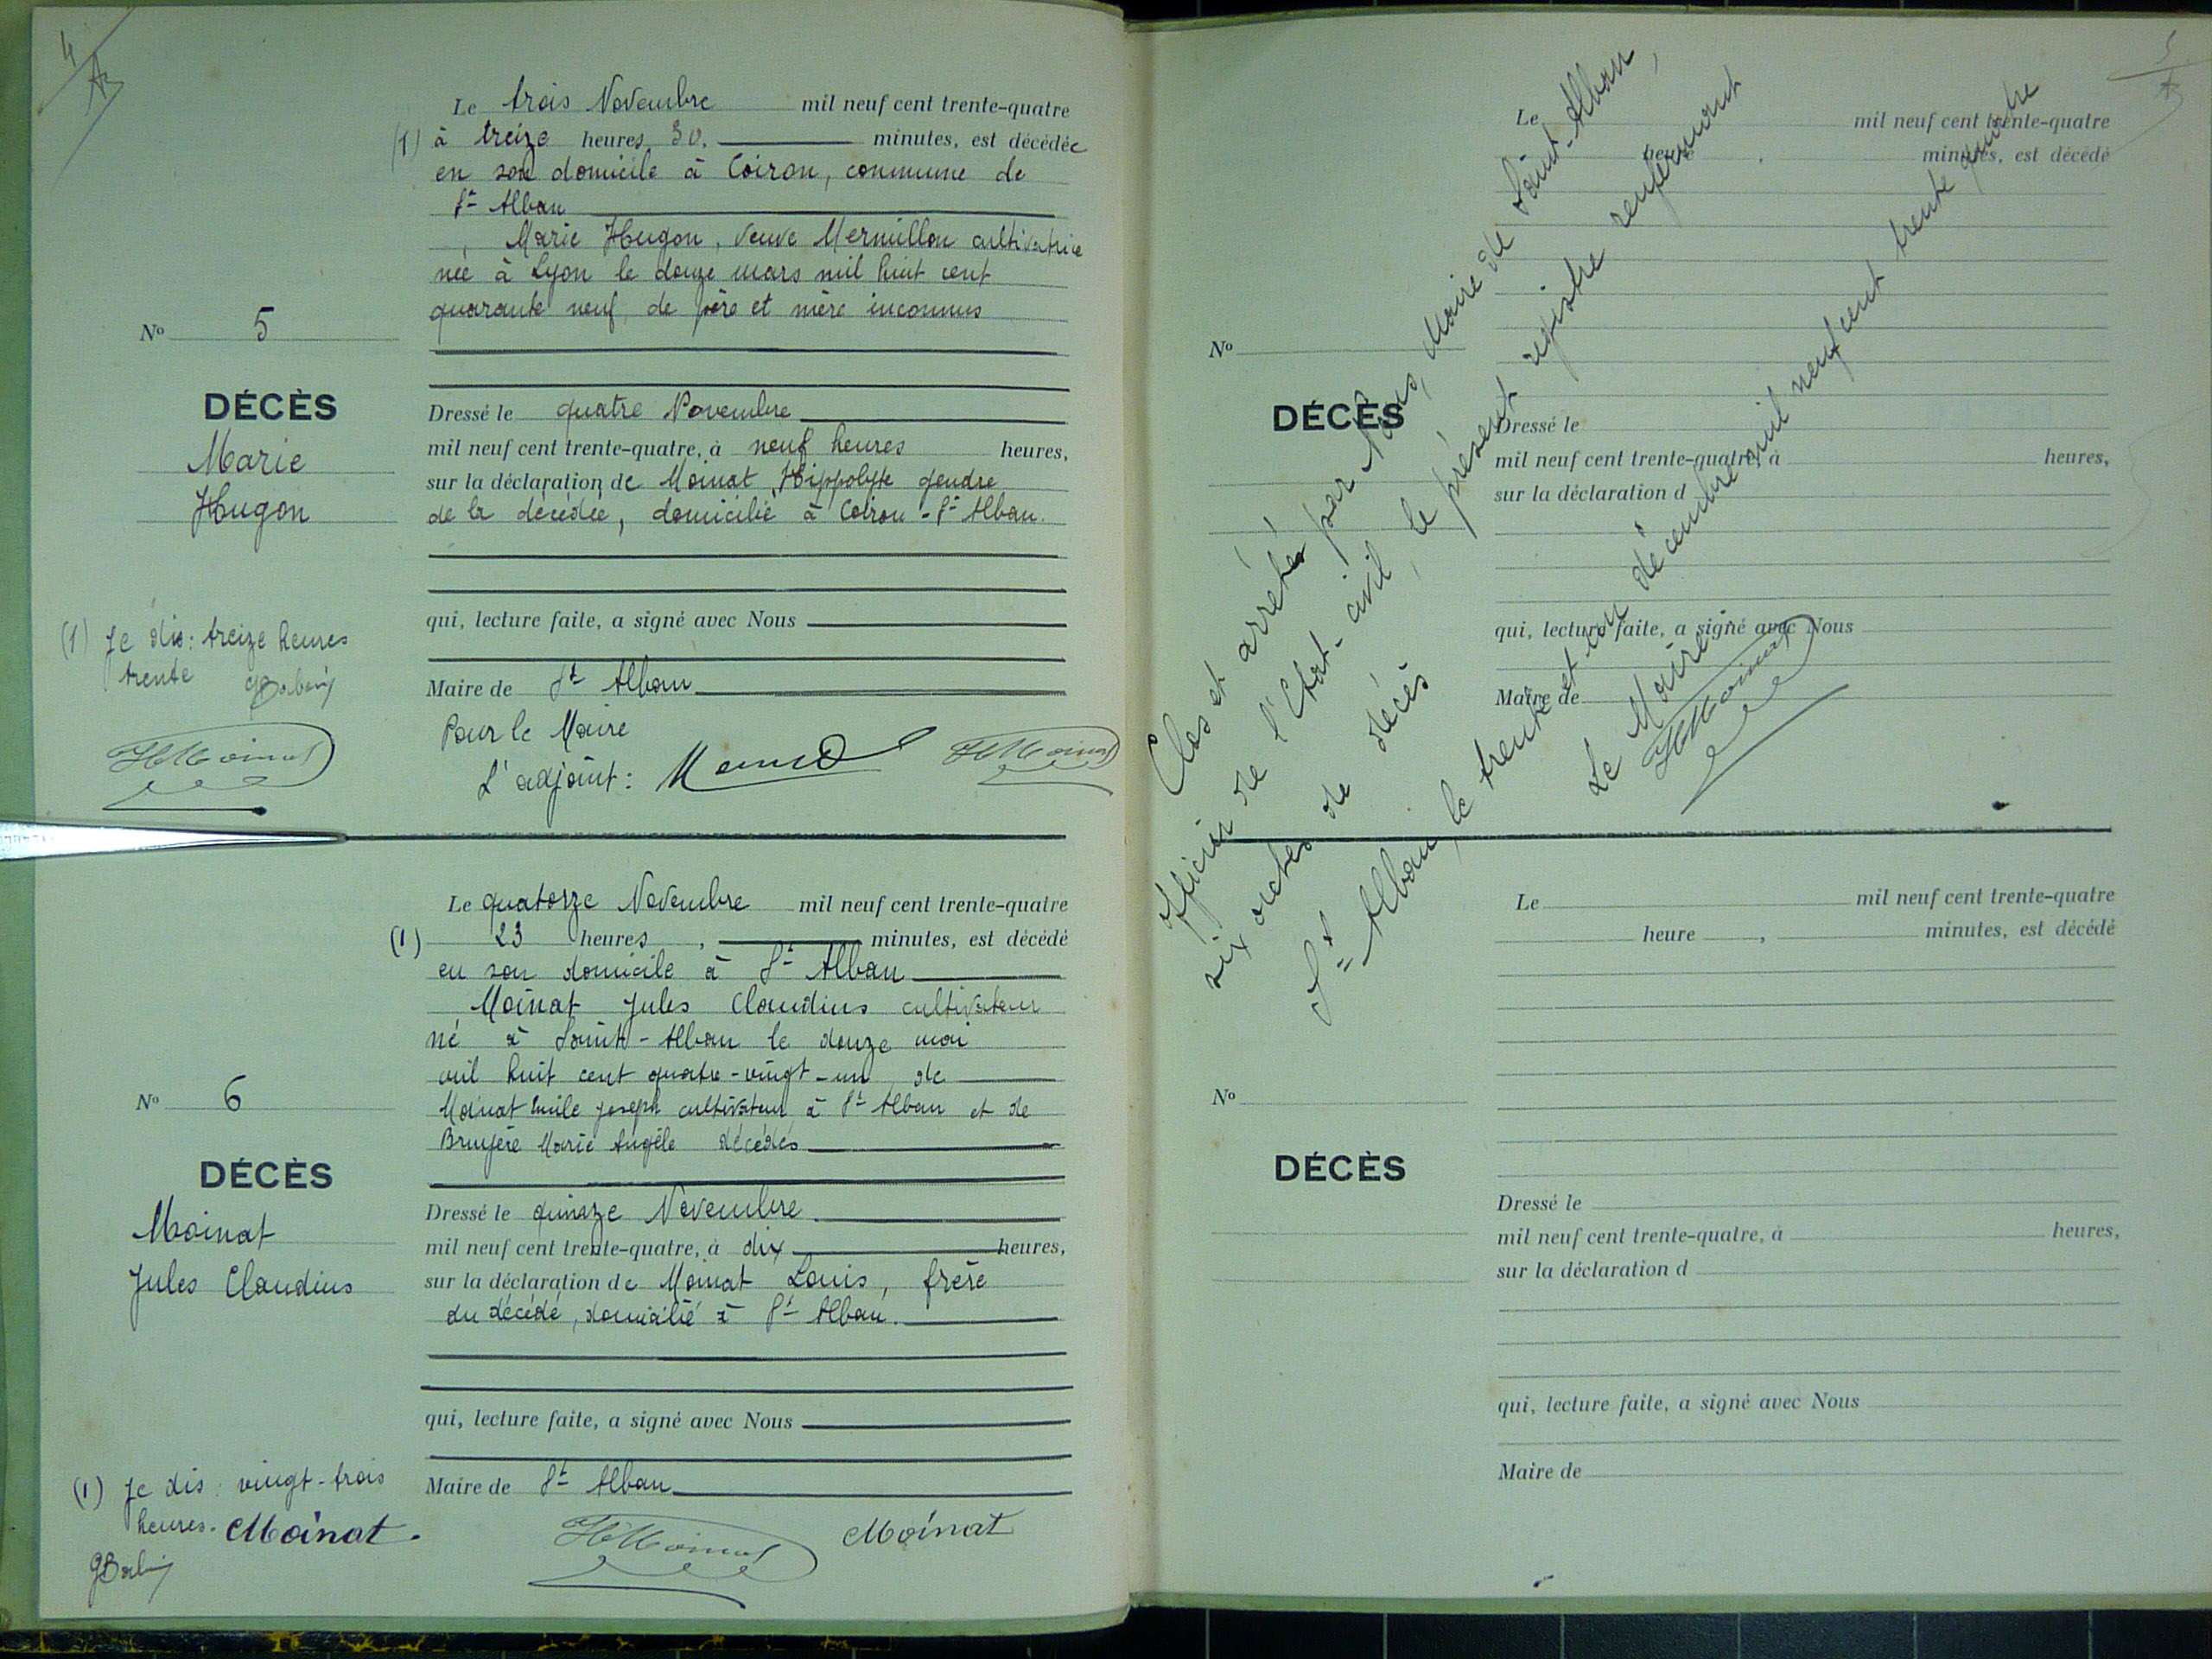 4
Le trois Novembre mil neuf cent trente-quatre
(1) à treize heures 30. minutes, est décédée
en son domicile à Coiron, commune de
St Alban
Marie Hugon, veuve Mermillon cultivatrice
née à Lyon le douze mars mil huit cent
quarante neuf, de père et mère inconnus
No 5
DÉCÈS
Marie
Hugon
Dressé le quatre Novembre
mil neuf cent trente-quatre, à neuf heures heures,
sur la déclaration de Moinat Hippolyte gendre
de la décédée, domicilié à Coiron - St Alban.
qui, lecture faite, a signé avec Nous
(1) Je dis : treize heures
trente
Maire de St Alban
Pour le Maire
L'adjoint :
HMoinat
HMoinat
Le quatorze Novembre mil neuf cent trente-quatre
(1) 23 heures, minutes, est décédé
en son domicile à St Alban
Moinat Jules Claudius cultivateur
né à Saint-Alban le douze mai
mil huit cent quatre-vingt-un de
Moinat Emile Joseph cultivateur à St Alban et de
Bruyère Marie Angèle décédés
No 6
DÉCÈS
Moinat
Jules Claudius
Dressé le quinze Novembre
mil neuf cent trente-quatre, à dix heures,
sur la déclaration de Moinat Louis, frère
du décédé, domicilié à St Alban.
qui, lecture faite, a signé avec Nous
Maire de St Alban
(1) Je dis : vingt-trois
heures. Moinat.
HMoinat Moinat
5
Le mil neuf cent trente-quatre
heure , minutes, est décédé
No
DÉCÈS
Dressé le
mil neuf cent trente-quatre, à heures,
sur la déclaration d
qui, lecture faite, a signé avec Nous
Maire de
Clos et arrêté par Nous, Maire de Saint-Alban,
officier de l'Etat-civil, le présent registre renfermant
six actes de décès
St Alban le trente et un décembre mil neuf cent trente quatre
Le Maire
HMoinat
Le mil neuf cent trente-quatre
heure , minutes, est décédé
No
DÉCÈS
Dressé le
mil neuf cent trente-quatre, à heures,
sur la déclaration d
qui, lecture faite, a signé avec Nous
Maire de